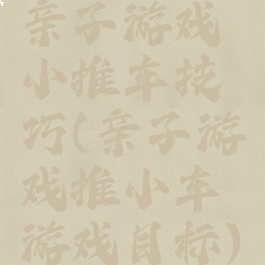 亲子游戏
小推车技
巧(亲子游
戏推小车
游戏目标)